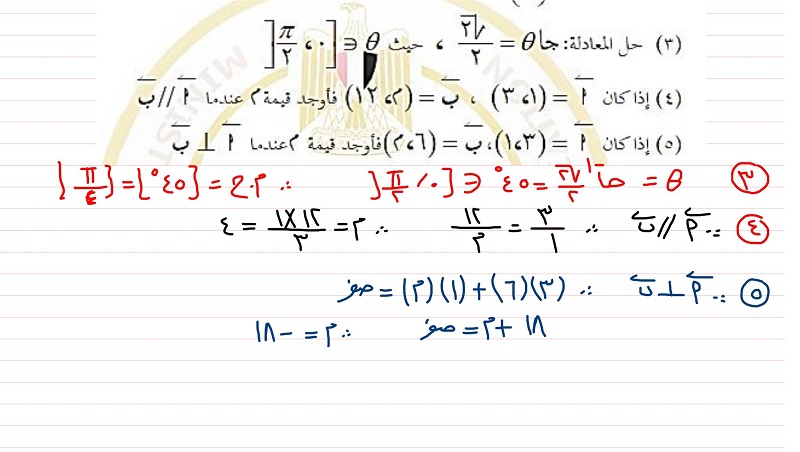 (٣) حل المعادلة: جا θ = √٢/٢ ، حيث θ ∈ [٠، π/٢[
(٤) إذا كان أ = (١، ٣) ، ب = (م، ١٢) فأوجد قيمة م عندما أ // ب
(٥) إذا كان أ = (٣، ١)، ب = (٦، م) فأوجد قيمة م عندما أ ⊥ ب
٣ θ = جا⁻¹ √٢/٢ = ٤٥° ∈ [٠، π/٢[ ∴ م.ح = {٤٥°} = {π/٤}
٤ ∵ أ // ب ∴ ٣/١ = ١٢/م ∴ م = ١٢×١/٣ = ٤
٥ ∵ أ ⊥ ب ∴ (٣)(٦) + (١)(م) = صفر
١٨ + م = صفر ∴ م = -١٨